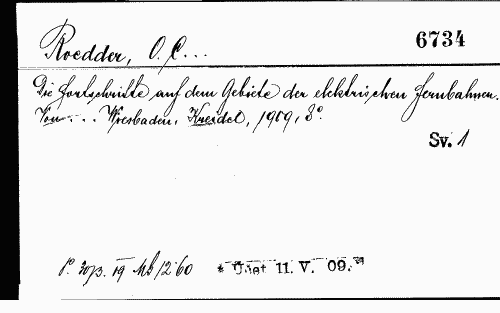 Roedder, O. C...
6734
Die Fortschritte auf dem Gebiete der elektrischen Fernbahnen.
Von . . . Wiesbaden, Kreidel, 1909, 8°.
Sv. 1
19 12 60
* Účet 11. V. 09.